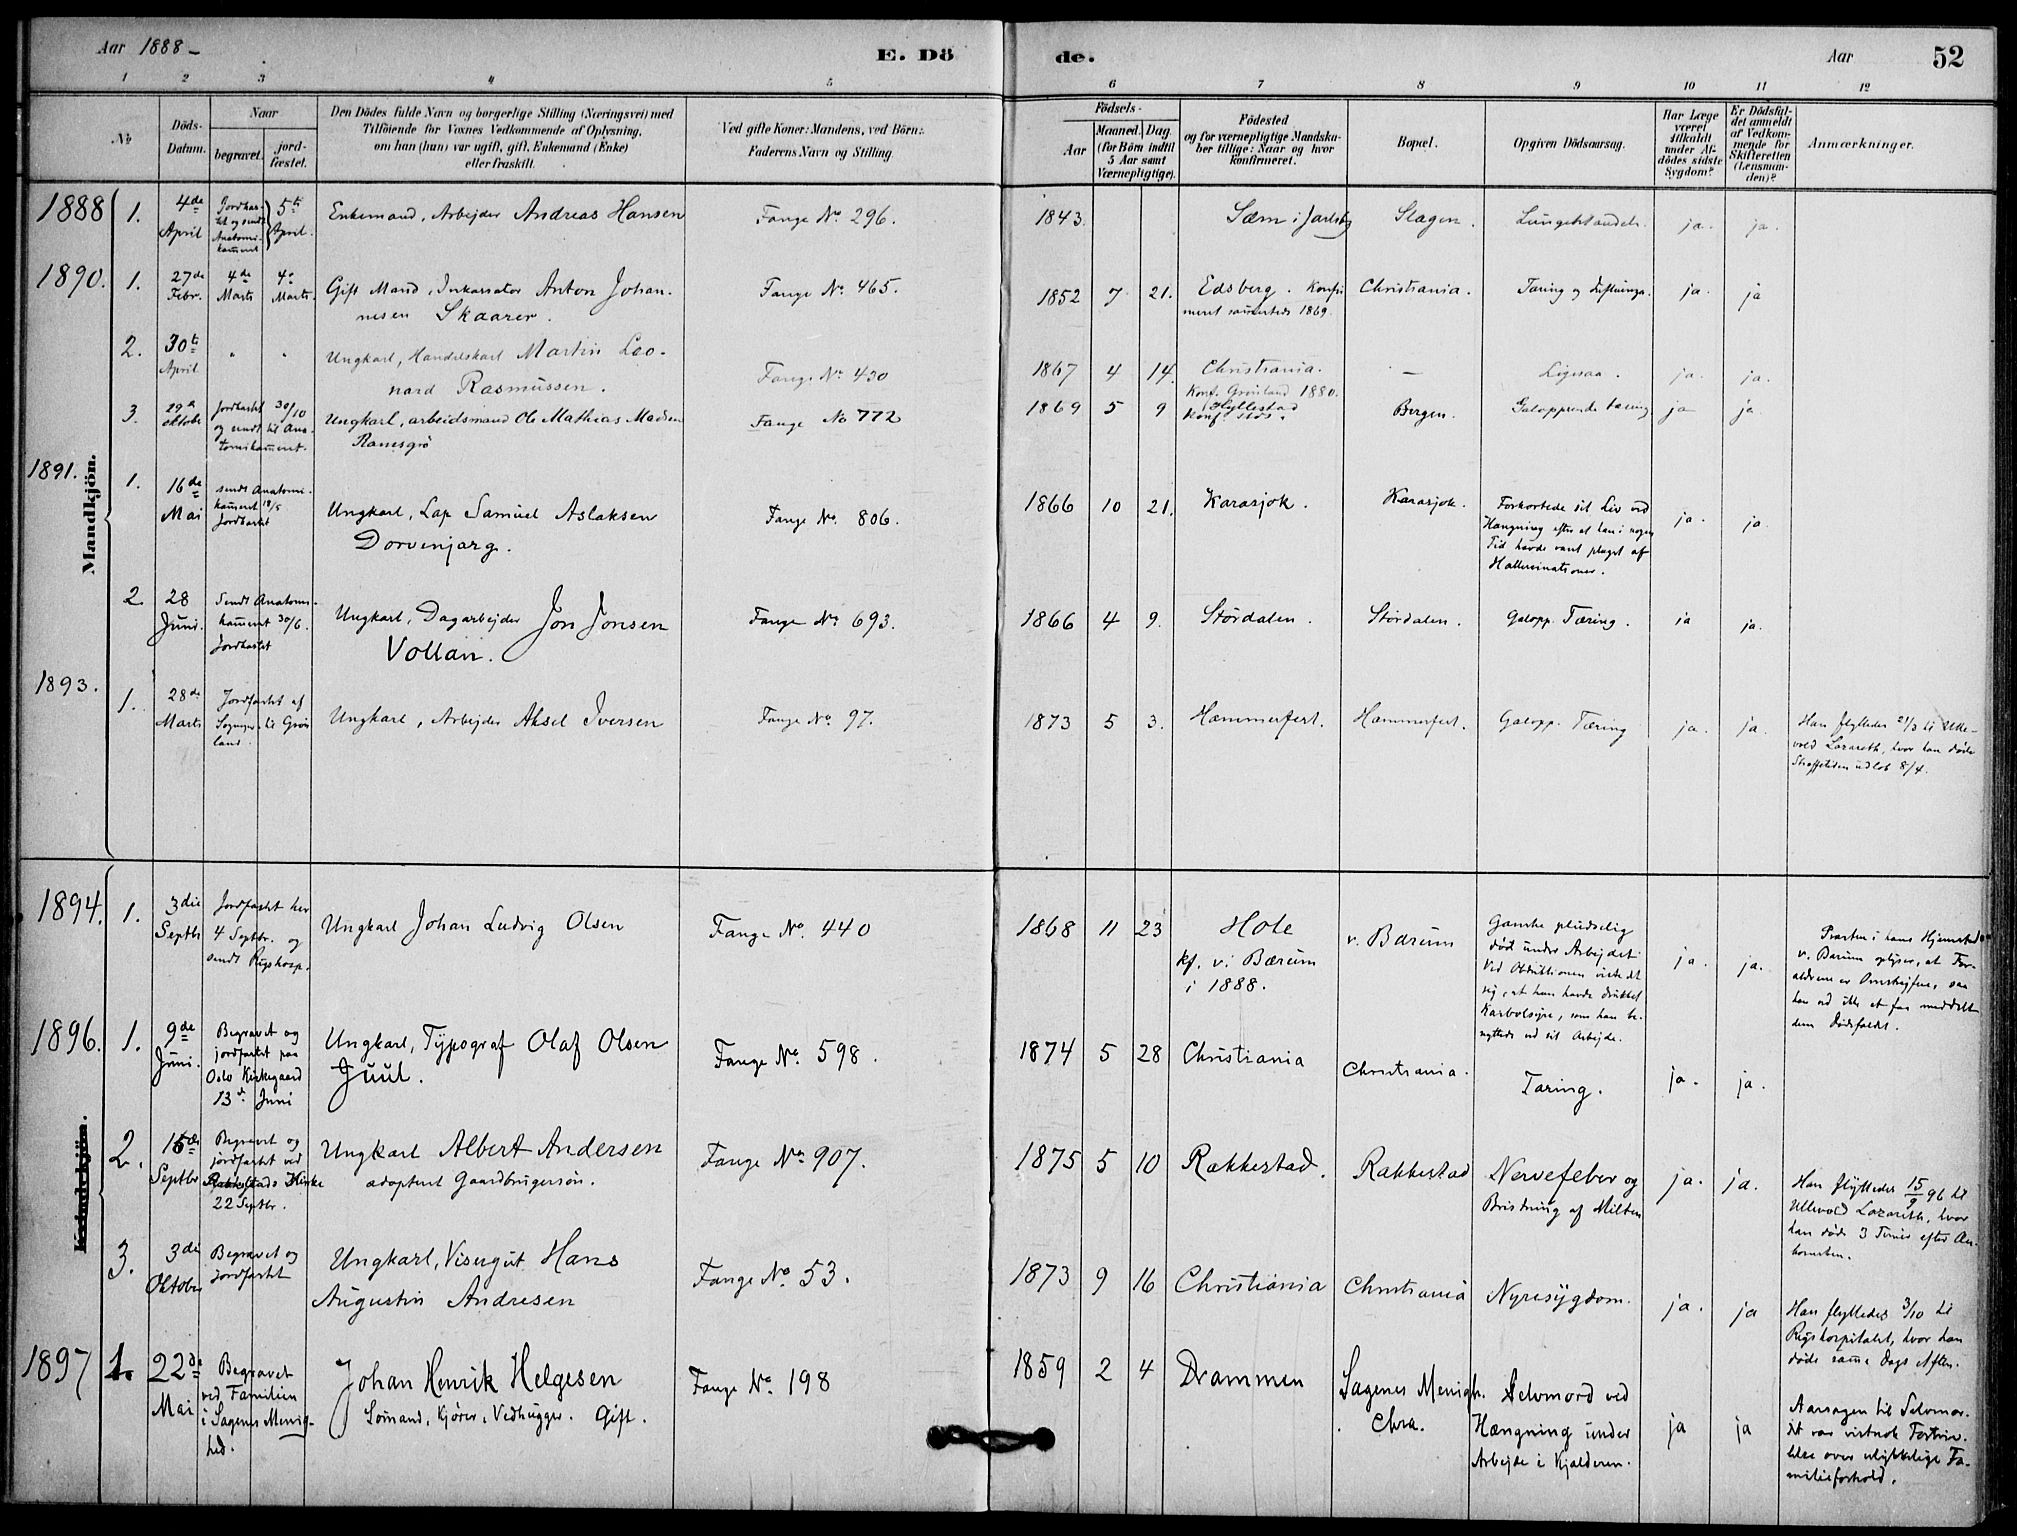 Aar 1888 –
E. Dö
de.
Aar
52
1 2 3 4 5 6 7 8 9 10 11 12
No.
Döds-
Datum.
Naar
begravet.
jord-
fæstet.
Den Dödes fulde Navn og borgerlige Stilling (Næringsvei) med
Tilföiende for Voxnes Vedkommende af Oplysning,
om han (hun) var ugift, gift, Enkemand (Enke)
eller fraskilt.
Ved gifte Koner: Mandens, ved Börn:
Faderens Navn og Stilling.
Födsels-
Aar
Maaned. Dag.
(for Börn indtil
5 Aar samt
Værnepligtige).
Födested
og for værnepligtige Mandska-
ber tillige: Naar og hvor
konfirmeret.
Bopæl.
Opgiven Dödsaarsag.
Har Læge
været
tilkaldt
under Af-
dödes sidste
Sygdom?
Er Dödsfal-
det anmeldt
af Vedkom-
mende for
Skifteretten
(Lensman-
den)?
Anmærkninger.
Mandkjön.
1888 1. 4de April
5te April.
Enkemand, Arbejder Andreas Hansen
Fange No. 296.
1843.
Sæm i Jarlsbg
Slagen.
ja. ja.
1890. 1. 27de Febr.
4de Marts
4de Marts.
Gift Mand, Inkassator Anton Johan-
nesen Skaarer.
Fange No. 465.
1852 7 21.
Edsberg. Konfir
meret sammesteds 1869.
Christiania.
ja. ja
2. 30te April
" "
Ungkarl, Handelskarl Martin Leo-
nard Rasmussen.
Fange No. 430
1867 4 14.
Christiania.
Konf. Grønland 1880.
—
Ligesaa.
ja. ja.
3. 29de oktobr
Jordfæstet 30/10
og sendt til Ana-
tomikammeret.
Ungkarl, arbeidsmand Ole Mathias Madsen
Ranesgrö
Fange No 772
1869 5 9
Hyllestad
Konf. stds.
Bergen.
Galopperende tæring
ja ja
1891. 1. 16de Mai
sendt Anatomi-
kammeret 18/5
Jordfæstet
Ungkarl, Lap Samuel Aslaksen
Dorvenjarg.
Fange No. 806.
1866 10 21.
Karasjok.
Karasjok.
Forkortede sit Liv ved
Hængning efter at han i nogen
Tid havde været plaget af
Hallucinationer.
ja. ja.
2. 28 Juni.
Sendt Anatomi-
kammeret 30/6.
Jordfæstet
Ungkarl, Dagarbejder Jon Jonsen
Vollan.
Fange No. 693.
1866 4 9.
Stördalen.
Stördalen.
Galopp. Tæring.
ja ja.
1893. 1. 28de Marts
Jordfæstet af
Sogneprst til Grön
land.
Ungkarl, Arbejder Aksel Iversen
Fange No. 97.
1873 5 3.
Hammerfest.
Hammerfest.
Galopp. Tæring
ja. ja.
Han flyttedes 21/3 til Ulle-
vold Lazareth, hvor han døde
Straffetiden udløb 8/4.
1894. 1. 3die Septbr
Jordfæstet her
4 Septbr. og
sendt Rigshosp.
Ungkarl Johan Ludvig Olsen
Fange No. 440
1868 11 23
Hole
kf. v. Bærum
i 1888.
v. Bærum
Ganske pludselig
död under Arbejdet.
Ved Obduktionen viste det
sig, at han havde drukket
Karbolsyre, som han be-
nyttede ved sit Arbejde.
ja. ja.
Præsten i hans Hjemsted
v. Bærum oplyser, at For-
ældrene er Omstrejfere, saa
han ved ikke at faa meddelt
dem Dødsfaldet.
Kvindekjön.
1896. 1. 9de Juni.
Begravet og
jordfæstet paa
Oslo Kirkegaard
13de Juni
Ungkarl, Typograf Olaf Olsen
Juul.
Fange No. 598.
1874 5 28
Christiania
Christiania.
Tæring.
ja. ja.
2. 15de Septbr
Begravet og
jordfæstet ved
Rakkestads Kirke
22 Septbr.
Ungkarl Albert Andersen
adopteret Gaardbrugersøn.
Fange No. 907.
1875 5 10
Rakkestad.
Rakkestad
Nervefeber og
Bristning af Milten
ja. ja.
Han flyttedes 15/9 96 til
Ullevold Lazareth, hvor
han døde 3 Timer efter An-
komsten.
3. 3die Oktober
Begravet og
jordfæstet
Ungkarl, Visergut Hans
Augustin Andresen
Fange No. 53.
1873 9 16
Christiania
Christiania
Nyresygdom.
ja. ja
Han flyttedes 3/10 til
Rigshospitalet, hvor han
døde samme Dags Aften.
1897 1. 22de Mai
Begravet
ved Familien
i Sagenes Menig-
hed.
Johan Henrik Helgesen
Sømand, Kjører, Vedhugger. Gift.
Fange No. 198
1859 2 4
Drammen
Sagenes Menigh.
Chra.
Selvmord ved
Hængning under
Arbejde i Kjælderen.
ja ja
Aarsagen til Selvmor-
det var vistnok Fortviv-
lelse over ulykkelige Fa-
milieforhold.